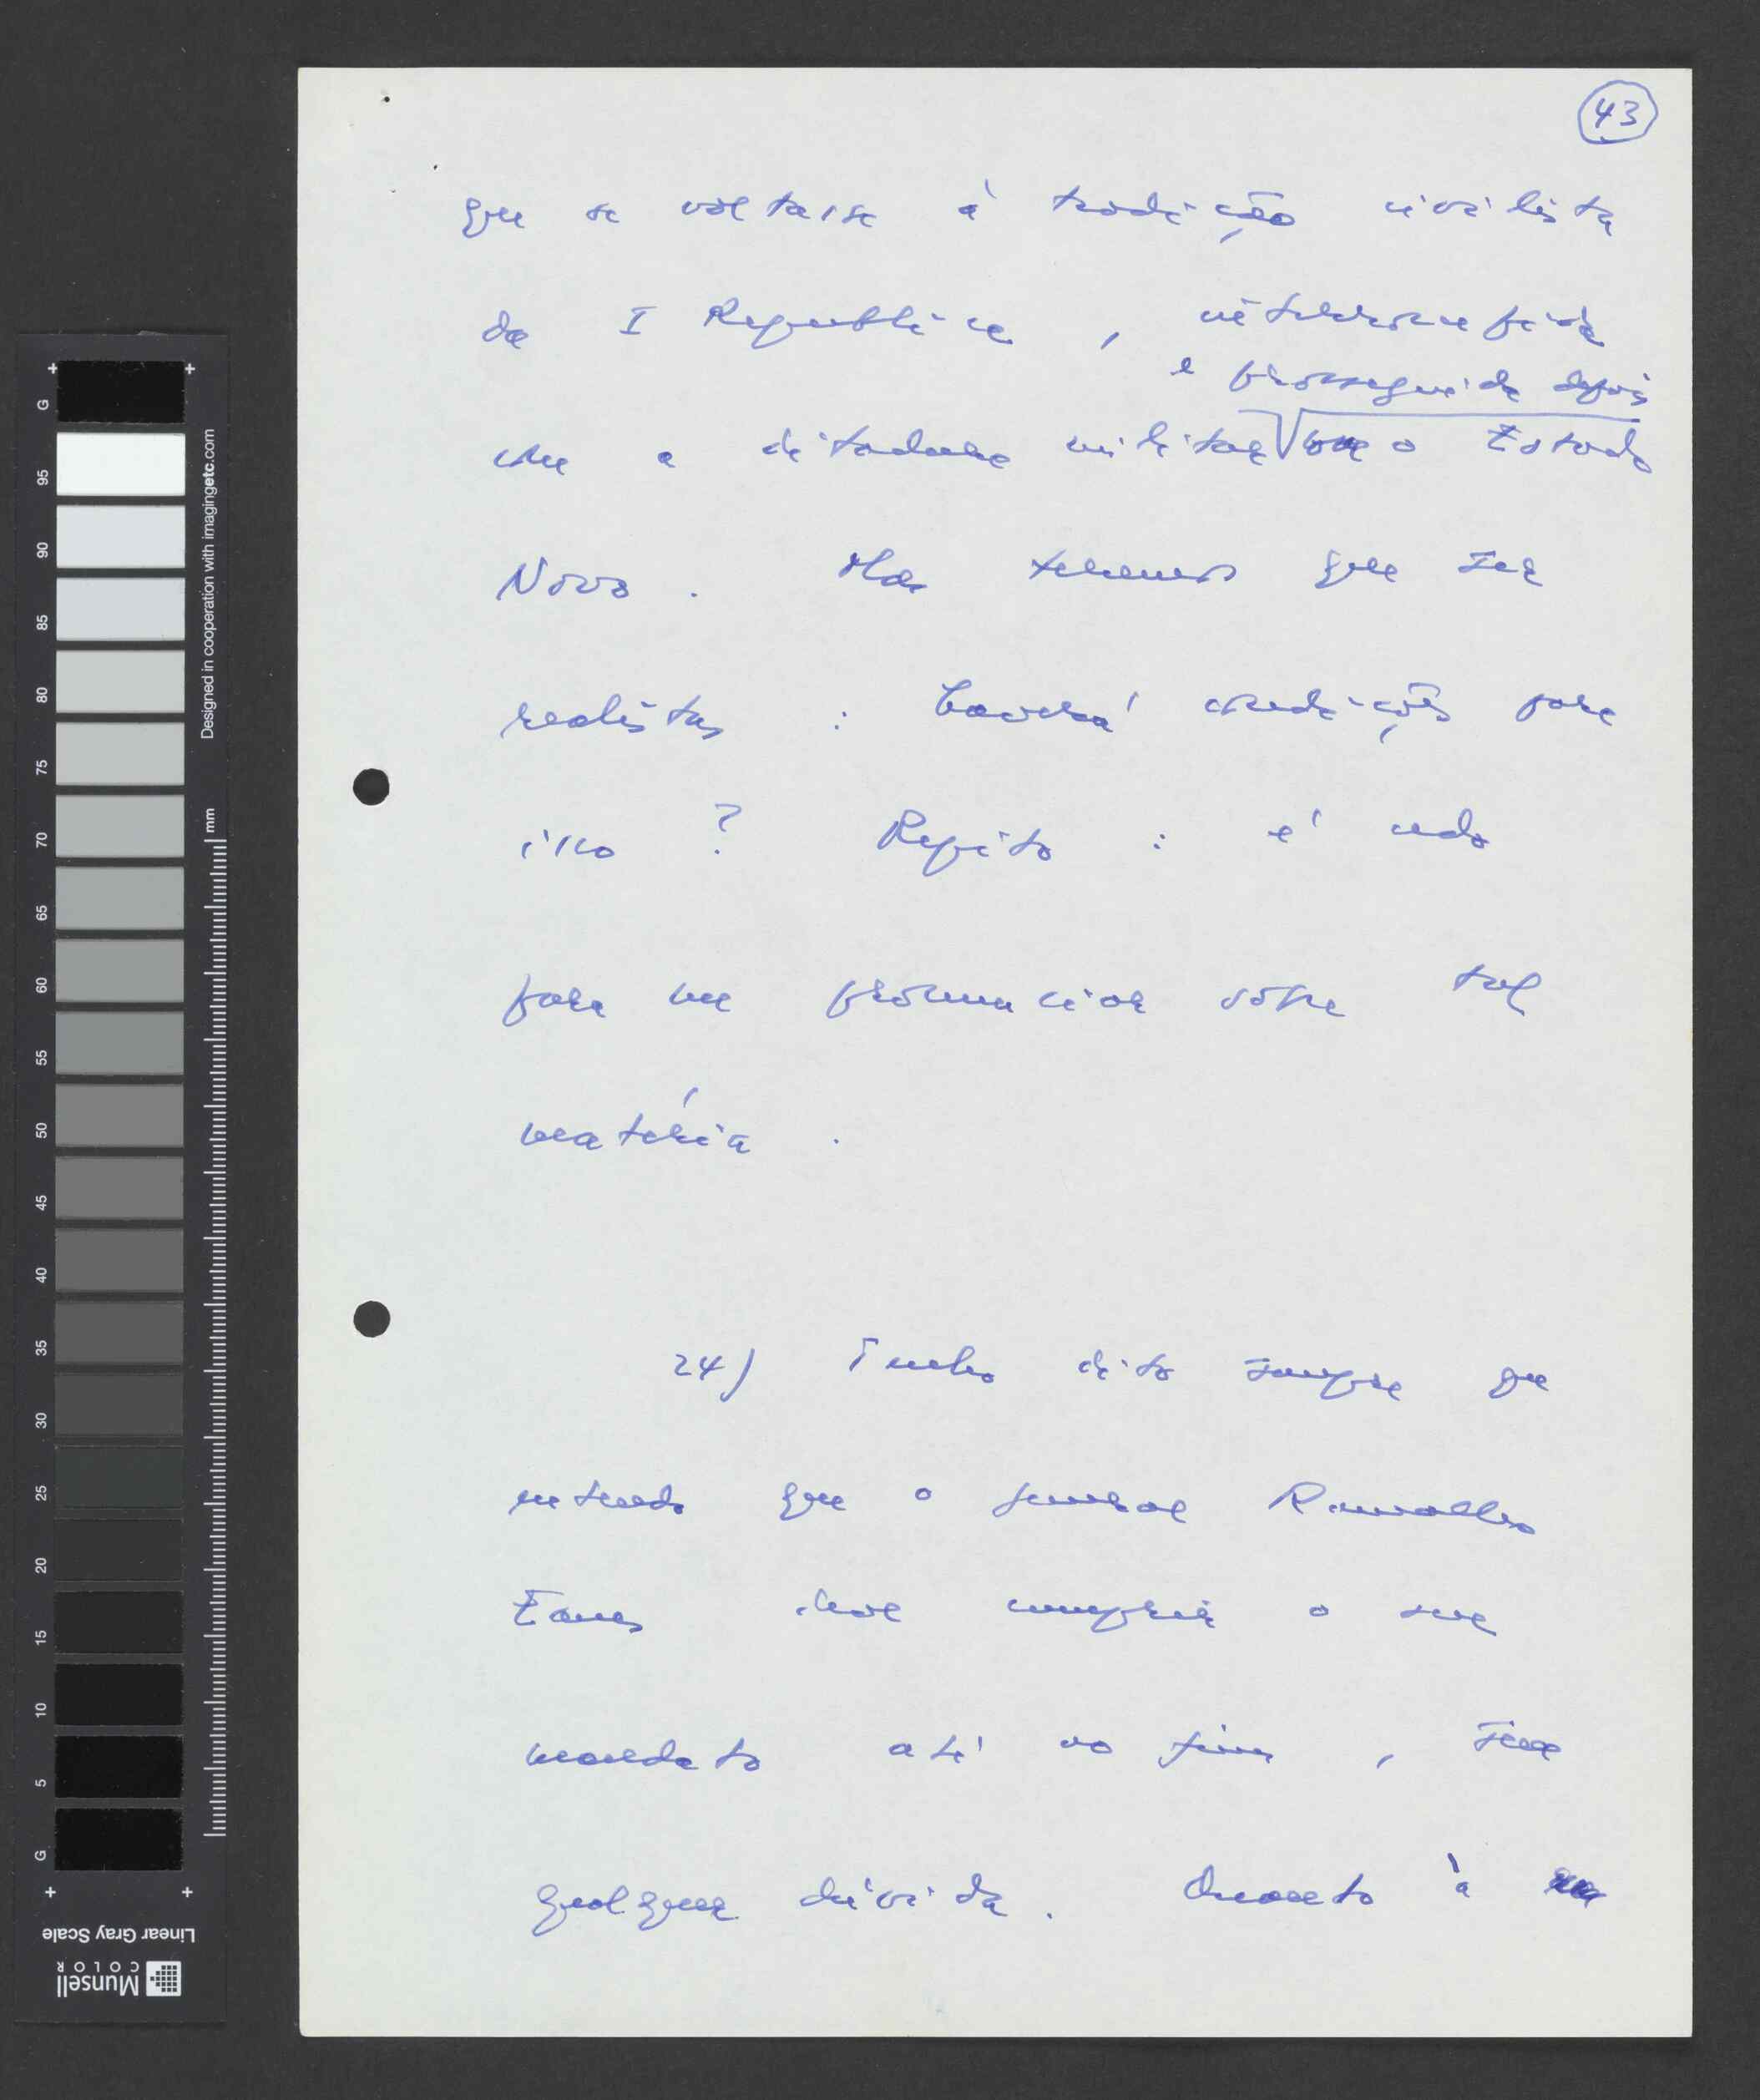 43
que se voltasse à tradição civilista
da I República, interrompida
e prosseguida depois
com a ditadura militar com o Estado
Novo. Mas teremos que ser
realistas: haverá condições para
isso? Repito: é cedo
para me pronunciar sobre tal
matéria.
24) Tenho dito sempre que
entendo que o general Ramalho
Eanes deve cumprir o seu
mandato até ao fim, sem
qualquer dúvida. Quanto à
G
95
90
85
80
75
70
65
60
55
50
45
40
35
30
25
20
15
10
5
G
mm
Designed in cooperation with imagingetc.com
Linear Gray Scale
Munsell
COLOR